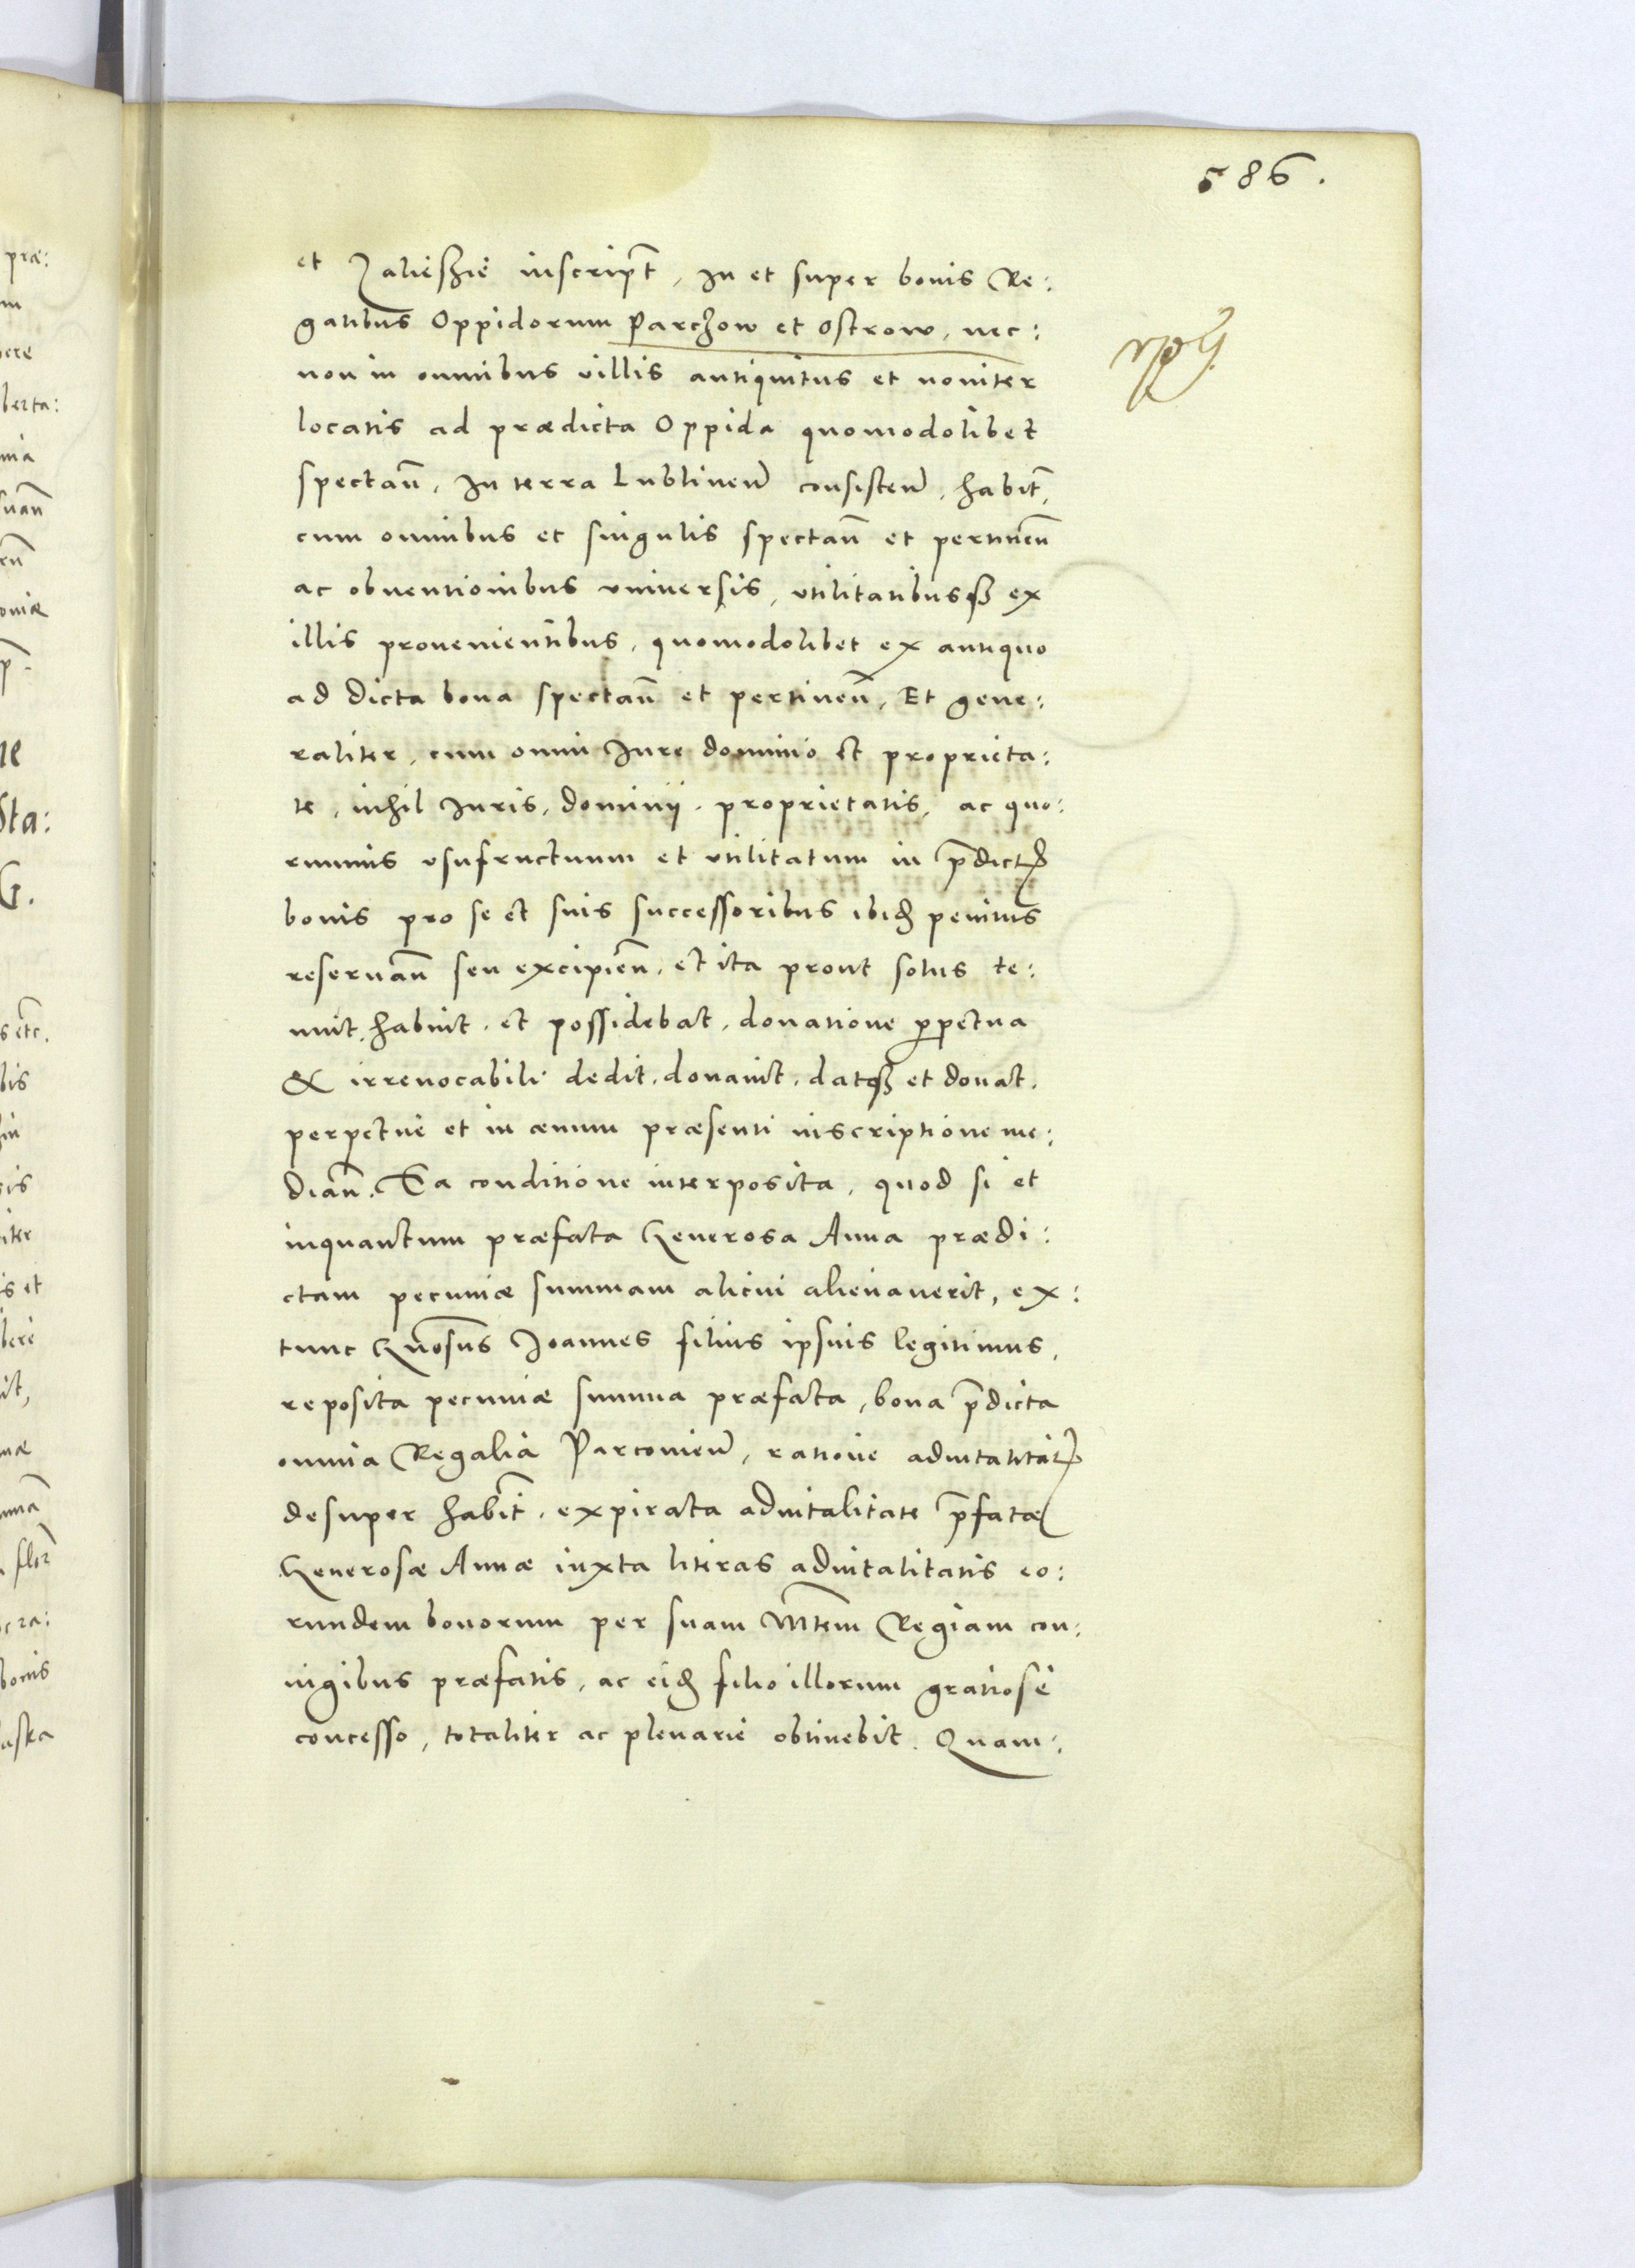 586.
et Zalieszie inscript̃, In et super bonis Re:
galibus Oppidorum Parczow et Ostrow, nec:
non in omnibus villis antiquitus et noviter
locatis ad prædicta Oppida quomodolibet
spectañ, In terra Lublineñ consisteñ, habit̃,
cum omnibus et singulis spectañ et pertineñ
ac obventionibus vniversis, vtilitatibusq₃ ex
illis provenientibus, quomodolibet ex antiquo
ad dicta bona spectañ et pertineñ, Et gene:
raliter, cum omni Iure dominio et proprieta:
te, nihil Iuris, dominij, proprietatis, ac quo:
rumvis vsufructuum et vtilitatum in p̃dictis
bonis pro se et suis successoribus ibid̃ penitus
reservañ seu excipieñ, et ita prout solus te:
nuit, habuit, et possidebat, donatione perpetua
& irrevocabili dedit, donavit, datq₃ et donat,
perpetue et in ævum præsenti inscriptione me:
diañ. Ea conditione interposita, quod si et
inquantum præfata Generosa Anna prædi:
ctam pecuniæ summam alicui alienaverit, ex:
tunc Gñosus Joannes filius ipsius legitimus,
reposita pecuniæ summa præfata, bona p̃dicta
omnia Regalia Parcovieñ, ratione advitalitatis
desuper habit̃, expirata advitalitate p̃fatæ
Generosæ Annæ iuxta literas advitalitatis eo:
rundem bonorum per suam Mt̃em Regiam con:
iugibus præfatis, ac eid̃ filio illorum gratiose
concesso, totaliter ac plenarie obtinebit. Quam: